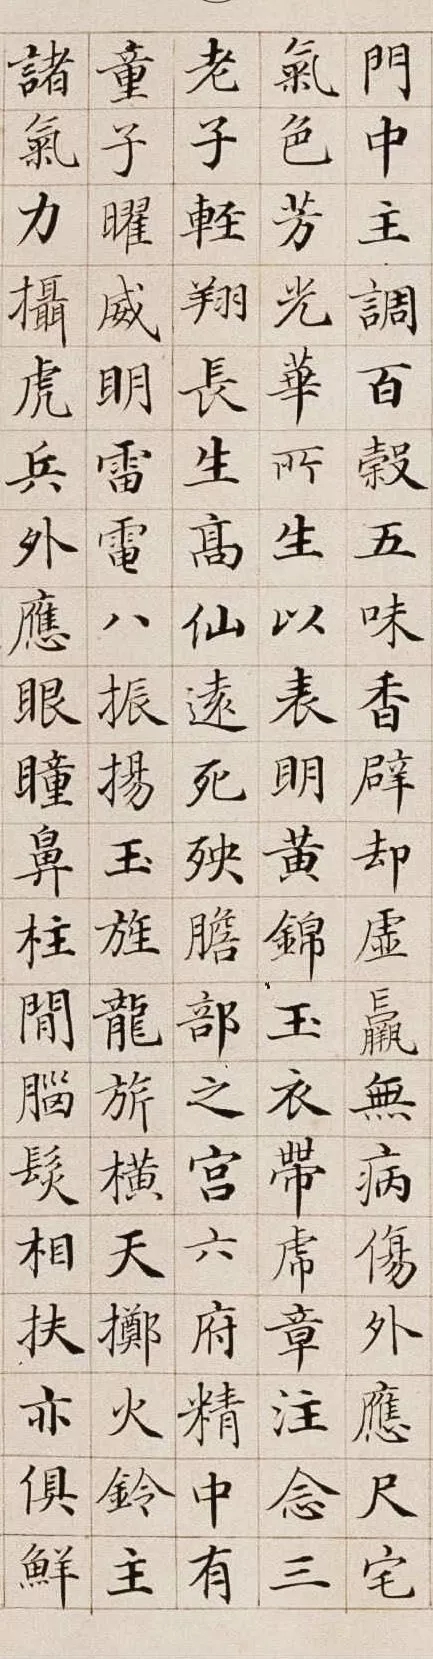 門中主調百穀五味香辟却虛羸無病傷外應尺宅
氣色芳光華所生以表明黃錦玉衣帶虎章注念三
老子輕翔長生高仙遠死殃膽部之宮六府精中有
童子曜威明雷電八振揚玉旌龍旂橫天擲火鈴主
諸氣力攝虎兵外應眼瞳鼻柱間腦髮相扶亦俱鮮